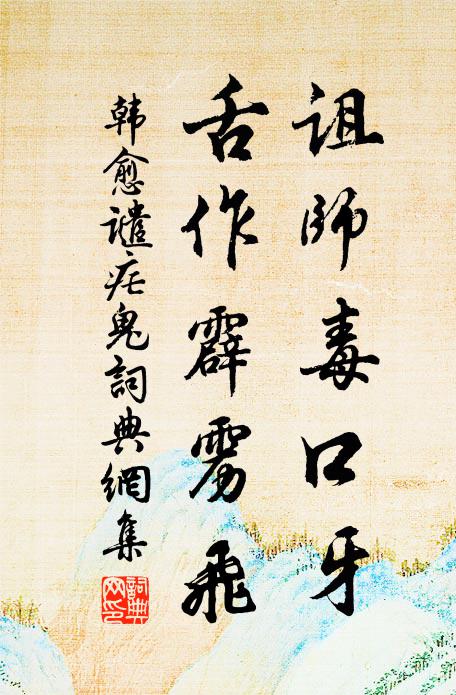 詛師毒口牙
舌作霹靂飛
韩愈譴疟鬼詞典網集
詞典网印